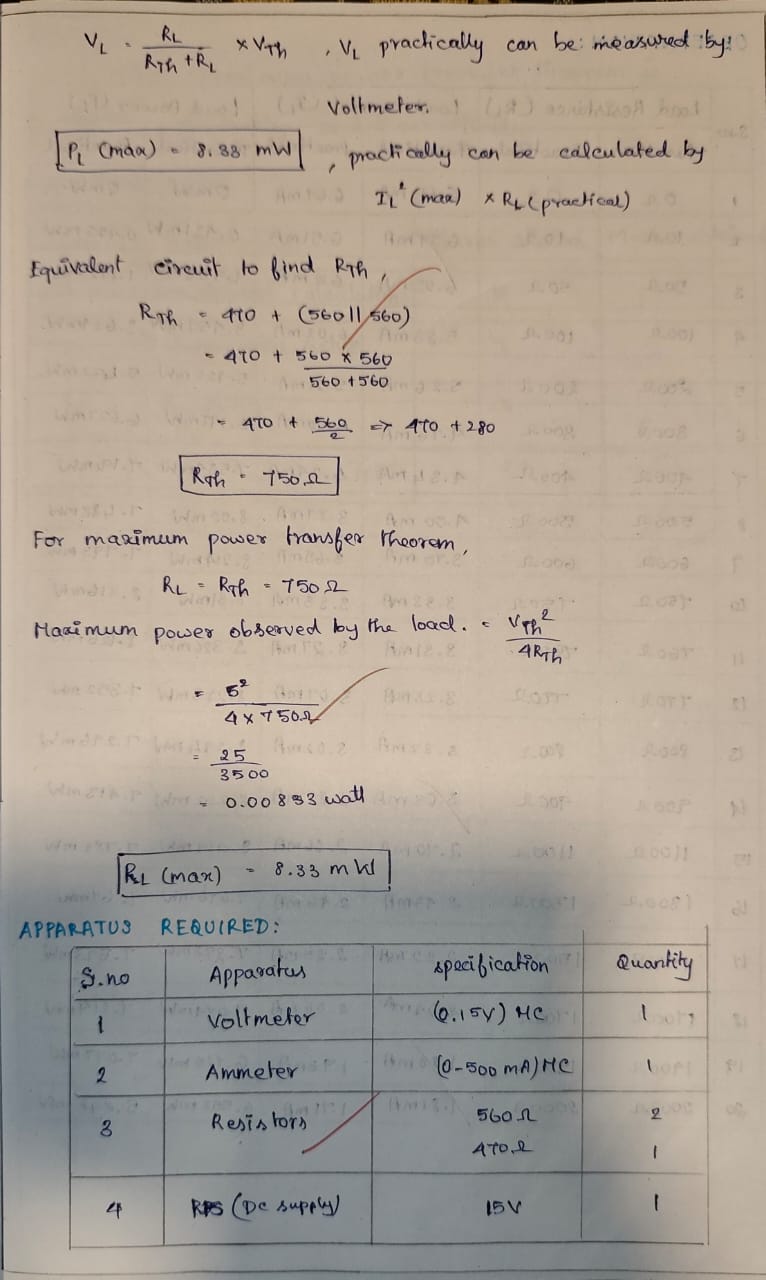 V_L = R_L / (R_Th + R_L) × V_Th , V_L practically can be measured by
Voltmeter.
P_L (max) = 8.33 mW , practically can be calculated by
I_L² (max) × R_L (practical)
Equivalent circuit to find R_Th,
R_Th = 470 + (560 || 560)
= 470 + 560 × 560 / 560 + 560
= 470 + 560/2 => 470 + 280
R_Th = 750 Ω
For maximum power transfer theorem,
R_L = R_Th = 750 Ω
Maximum power observed by the load. = V_Th² / 4R_Th
= 5² / 4 × 750Ω
= 25 / 3500
= 0.00833 watt
R_L (max) = 8.33 mW
APPARATUS REQUIRED:
S.no Apparatus specification Quantity
1 Voltmeter (0.15V) MC 1
2 Ammeter (0-500 mA) MC 1
3 Resistors 560 Ω 2
470 Ω 1
4 RPS (DC supply) 15V 1